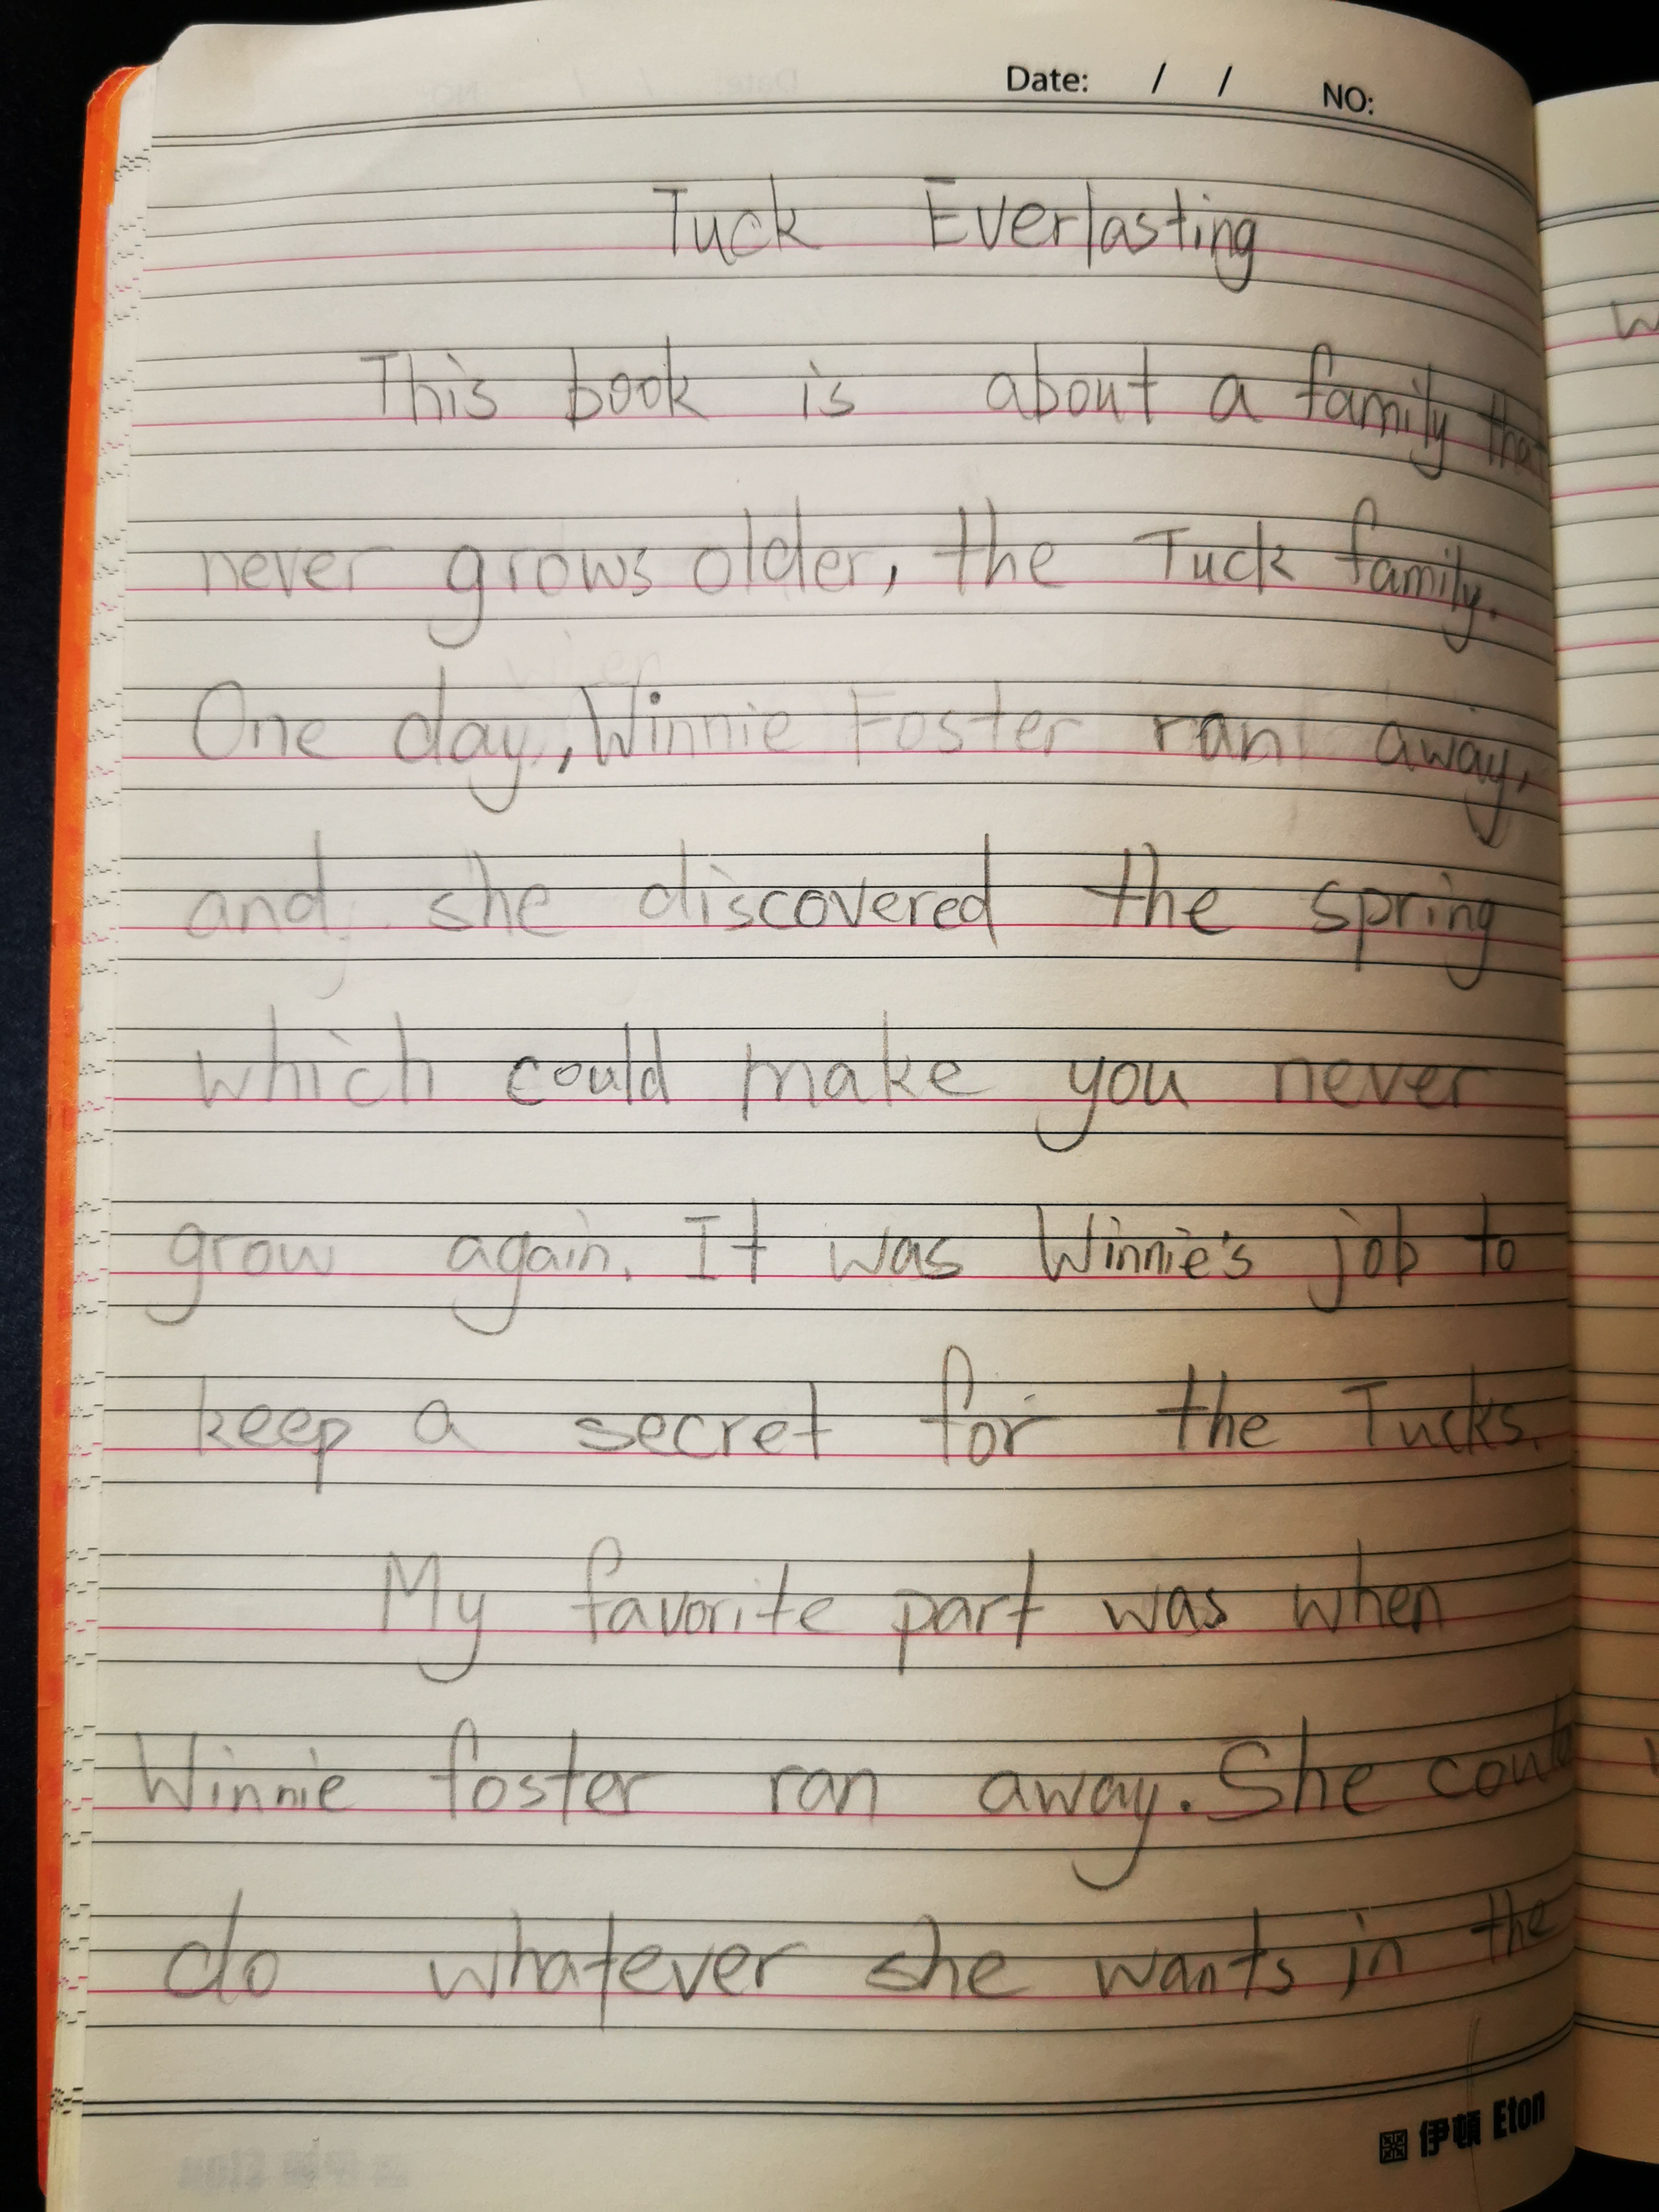 Date: / / NO:
Tuck Everlasting
This book is about a family that
never grows older, the Tuck family.
One day, Winnie Foster ran away,
and she discovered the spring
which could make you never
grow again. It was Winnie's job to
keep a secret for the Tucks.
My favorite part was when
Winnie foster ran away. She could
do whatever she wants in the
伊頓 Eton